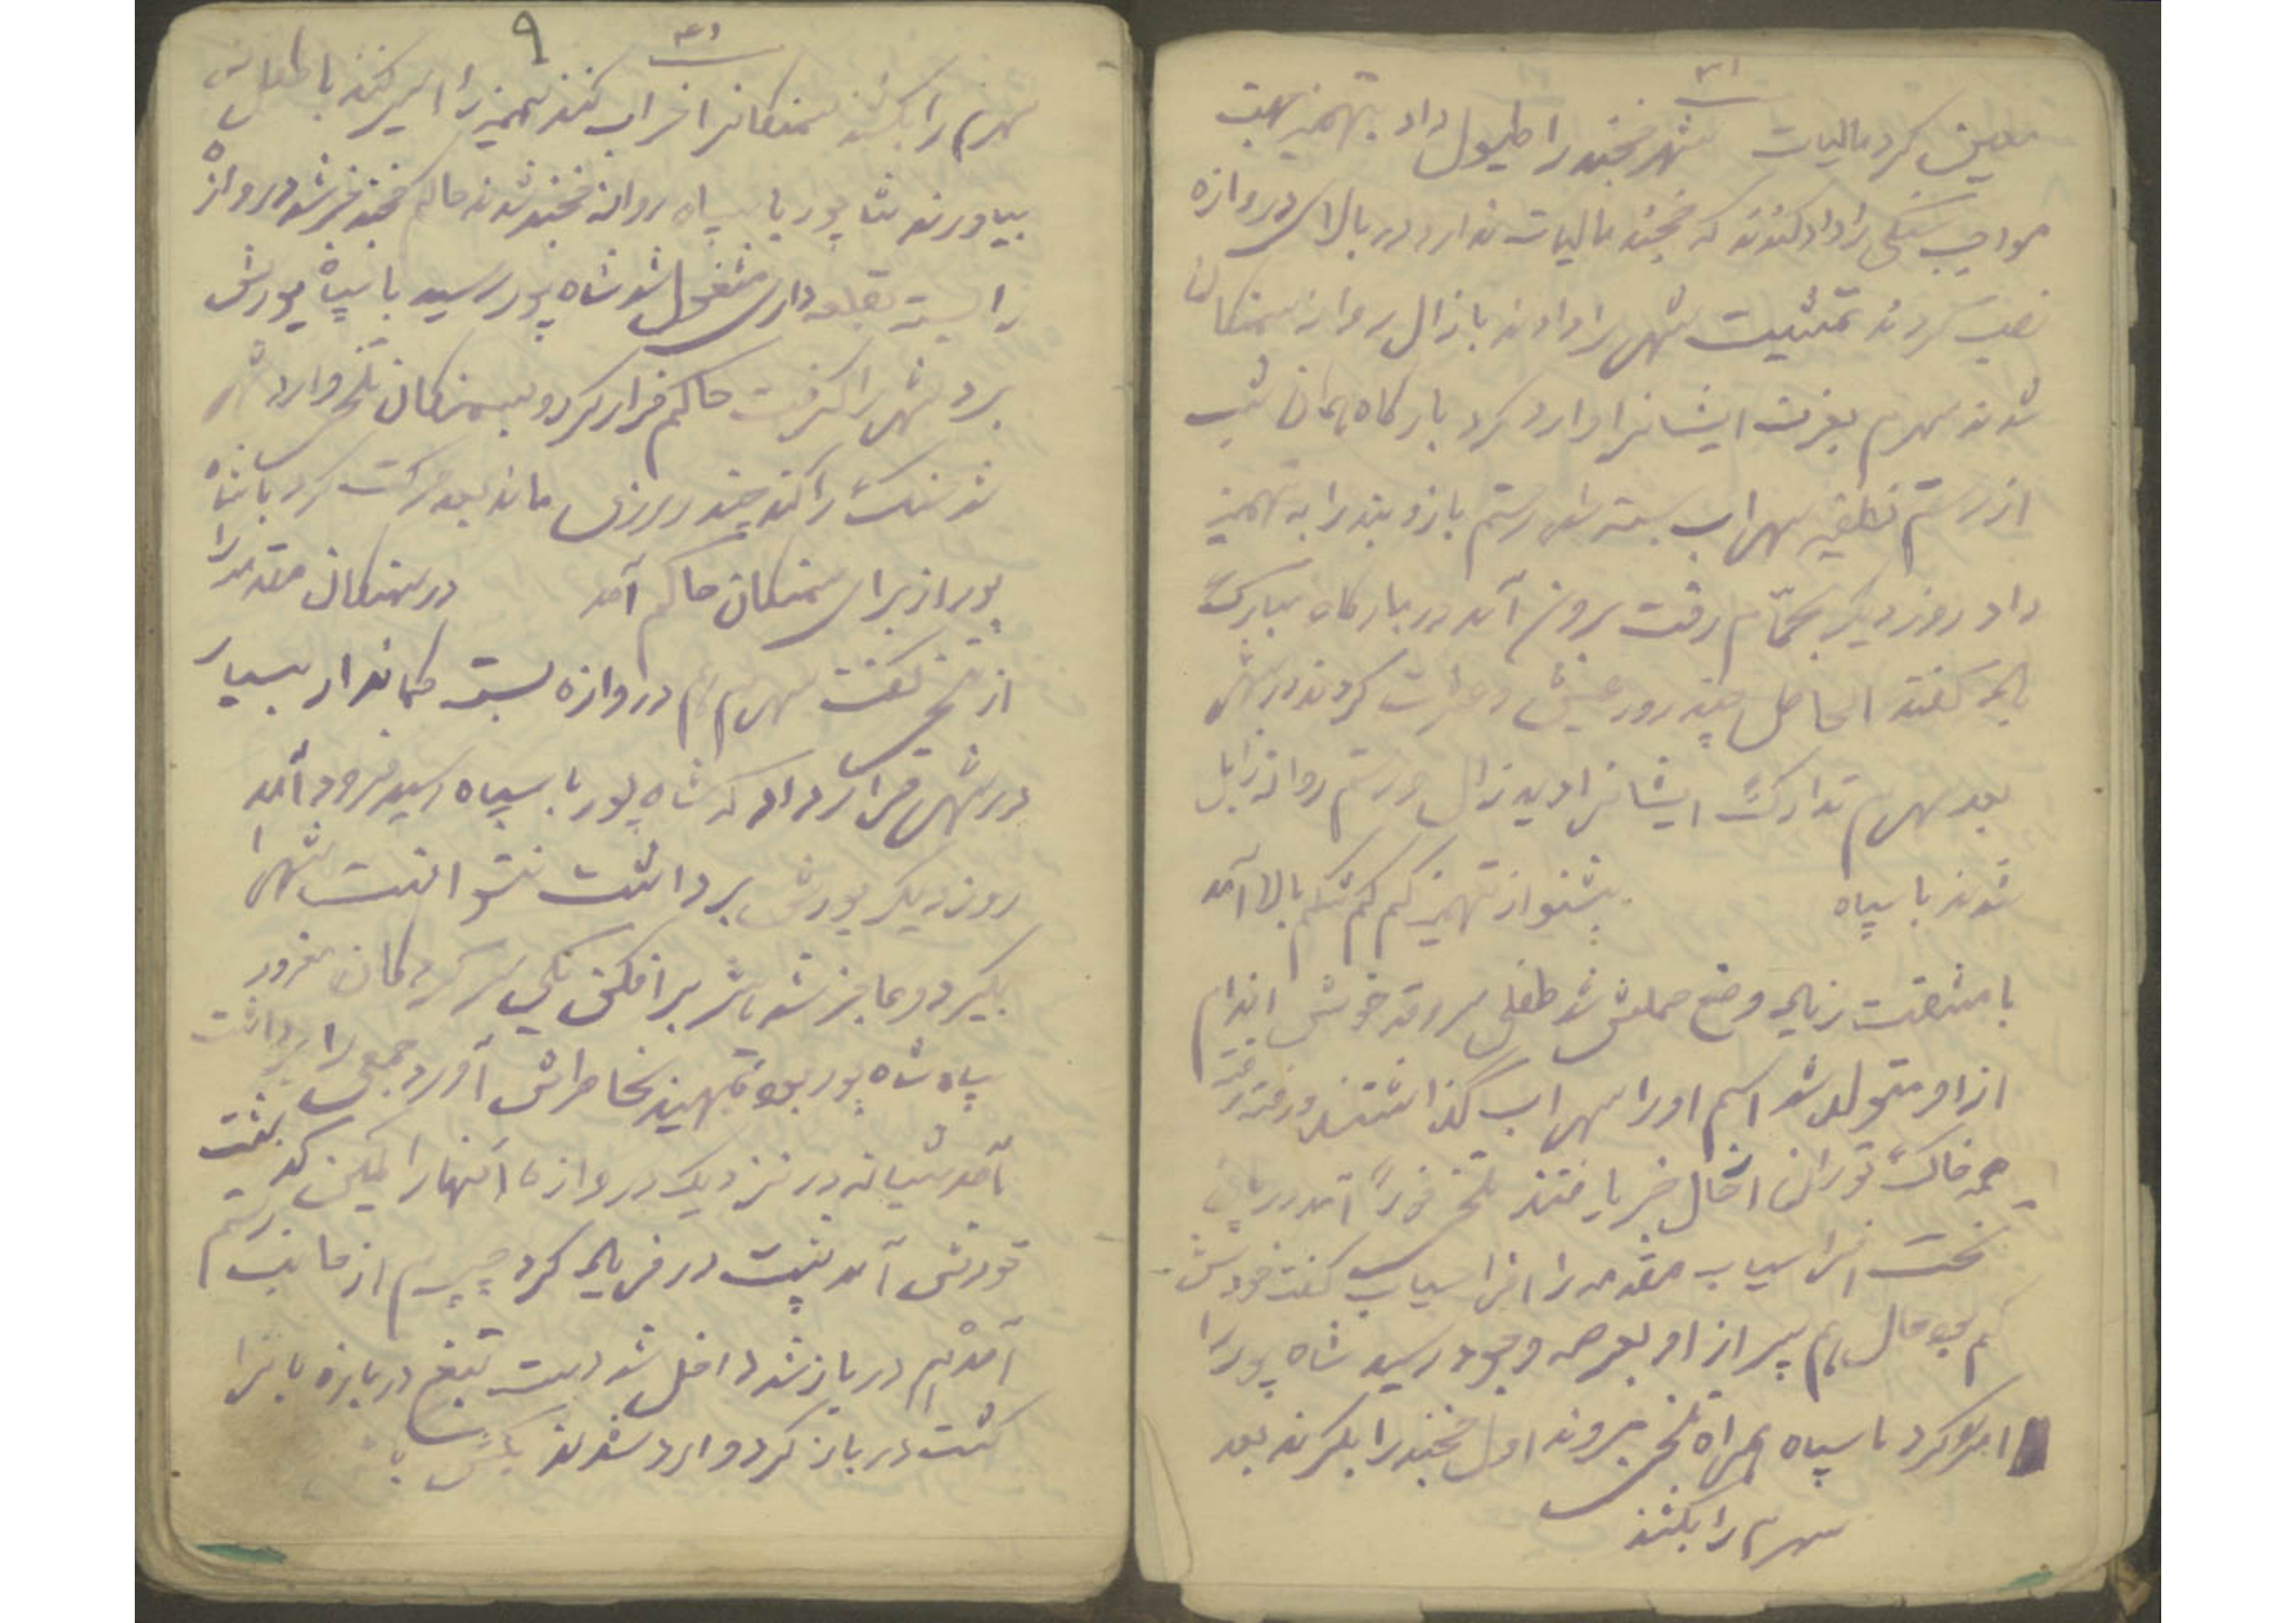 ۳۱
معین کرد مالیات شهر خجند را طیول داد بتهمینه جهت
مواجب سنگی را داد کندند که خجند مالیات ندارد در بالای دروازه
نصب کردند تمشیت شهر را دادند با زال روانه سمنکان
شدند سهرم بعزت ایشانرا وارد کرد بارکاه همان شب
از رستم نطفه سهراب بسته شد رستم بازوبند را به تهمینه
داد روز دیگر بحمّام رفت برون آمد در بارکاه مبارک
باد گفتند الحاصل چند روز عیش و عشرت کردند در شهر
بعد سهرم تدارک ایشانرا دید زال و رستم روانه زابل
شدند با سپاه بشنو از تهمینه کم کم شکم بالا آمد
با مشقت زیاد وضع حملش شد طفلی سروقد خوش اندام
از او متولد شد اسم او را سهراب گذاشتند رفته رفته
همه خاک توران احوال خبر یافتند تلخ فوراً آمد در پای
تخت افراسیاب مقدمه را افراسیاب گفت خودش
کم بود حال هم پسر از او بعرصه وجود رسید شاه پور را
امر کرد با سپاه همراه تلخ بروند اول خجند را بگیرند بعد
سهرم را بکشند
۹
سهرم را بکشند سمنکانرا خراب کنند تهمینه را اسیر کنند با طفلش
بیاورند شاپور با سپاه روانه خجند شدند حاکم خجند خبر شد دروازه
را بسته بقلعه داری مشغول شد شاه پور رسید با سپاه یورش
برد شهر را گرفت حاکم فرار کرد و بسمنکان تلخ وارد شهر
شد سنگ را کند چند روزی ماند بعد حرکت کرد با شاه
پور از برای سمنکان حاکم آمد در سمنکان مقدمه را
از تلخ گفت سهرم هم دروازه بست کماندار بسیار
در شهر قرار داد که شاه پور با سپاه رسید فرود آمد
روز دیگر یورش برداشت نتوانست شهر را
بگیرد و عاجز شد یکی سرکردکان مغرور
سپاه شاه پور بود تهمینه بخاطرش آورد جمعی را برداشت
آمد شبانه در نزدیک دروازه آنها را کمین کرد گفت
خودش آمد پشت در فریاد کرد سهرم از جانب رستم
آمدم در باز شد داخل شد دست تیغ دربازه بانرا
کشت در باز کرد وارد شدند